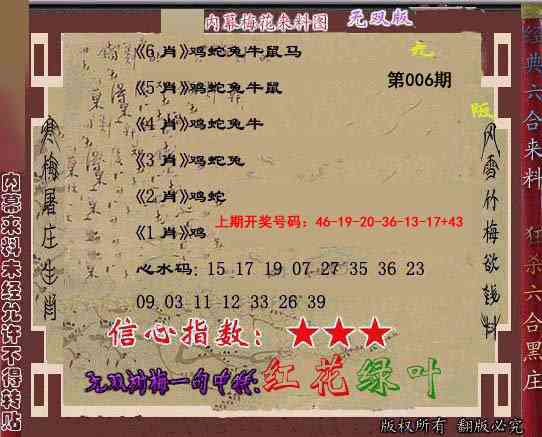 内幕梅花来料图 无双版
《6 肖》鸡蛇兔牛鼠马
无
《5 肖》鸡蛇兔牛鼠
第006期
版
《4 肖》鸡蛇兔牛
《3 肖》鸡蛇兔
《2 肖》鸡蛇
上期开奖号码：46-19-20-36-13-17+43
《1 肖》鸡
心水码: 15 17 19 07 27 35 36 23
09 03 11 12 33 26 39
信心指数：★★★
无双刘梅一句中特:红花绿叶
版权所有 翻版必究
寒梅屠庄生肖
风雪竹梅欲钱料
内幕来料未经允许不得转贴
经典六合来料
狂杀六合黑庄